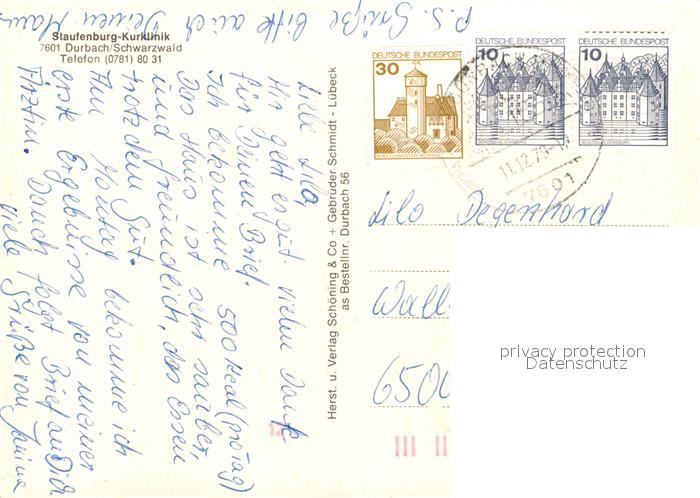 Staufenburg-Kurklinik
7601 Durbach/Schwarzwald
Telefon (0781) 80 31
P.S. Grüße
Bitte auch Deinen Mann
Liebe Lilo,
Mir geht es gut. Vielen Dank
für Deinen Brief.
Ich bekomme 500 kcal (pro Tag)
Das Haus ist sehr sauber
und freundlich, das Essen
trotzdem gut.
Am Montag bekomme ich
erste Ergebnisse von meiner
Ärztin. Danach folgt Brief an Dich
Viele Grüße von Janina
Herst. u. Verlag Schöning & Co + Gebrüder Schmidt - Lübeck
as Bestellnr. Durbach 56
DEUTSCHE BUNDESPOST
30
DEUTSCHE BUNDESPOST
10
SCHLOSS GLÜCKSBURG
DEUTSCHE BUNDESPOST
10
SCHLOSS GLÜCKSBURG
11.12.79
7601
Lilo Degenhard
Wall
6500
privacy protection
Datenschutz